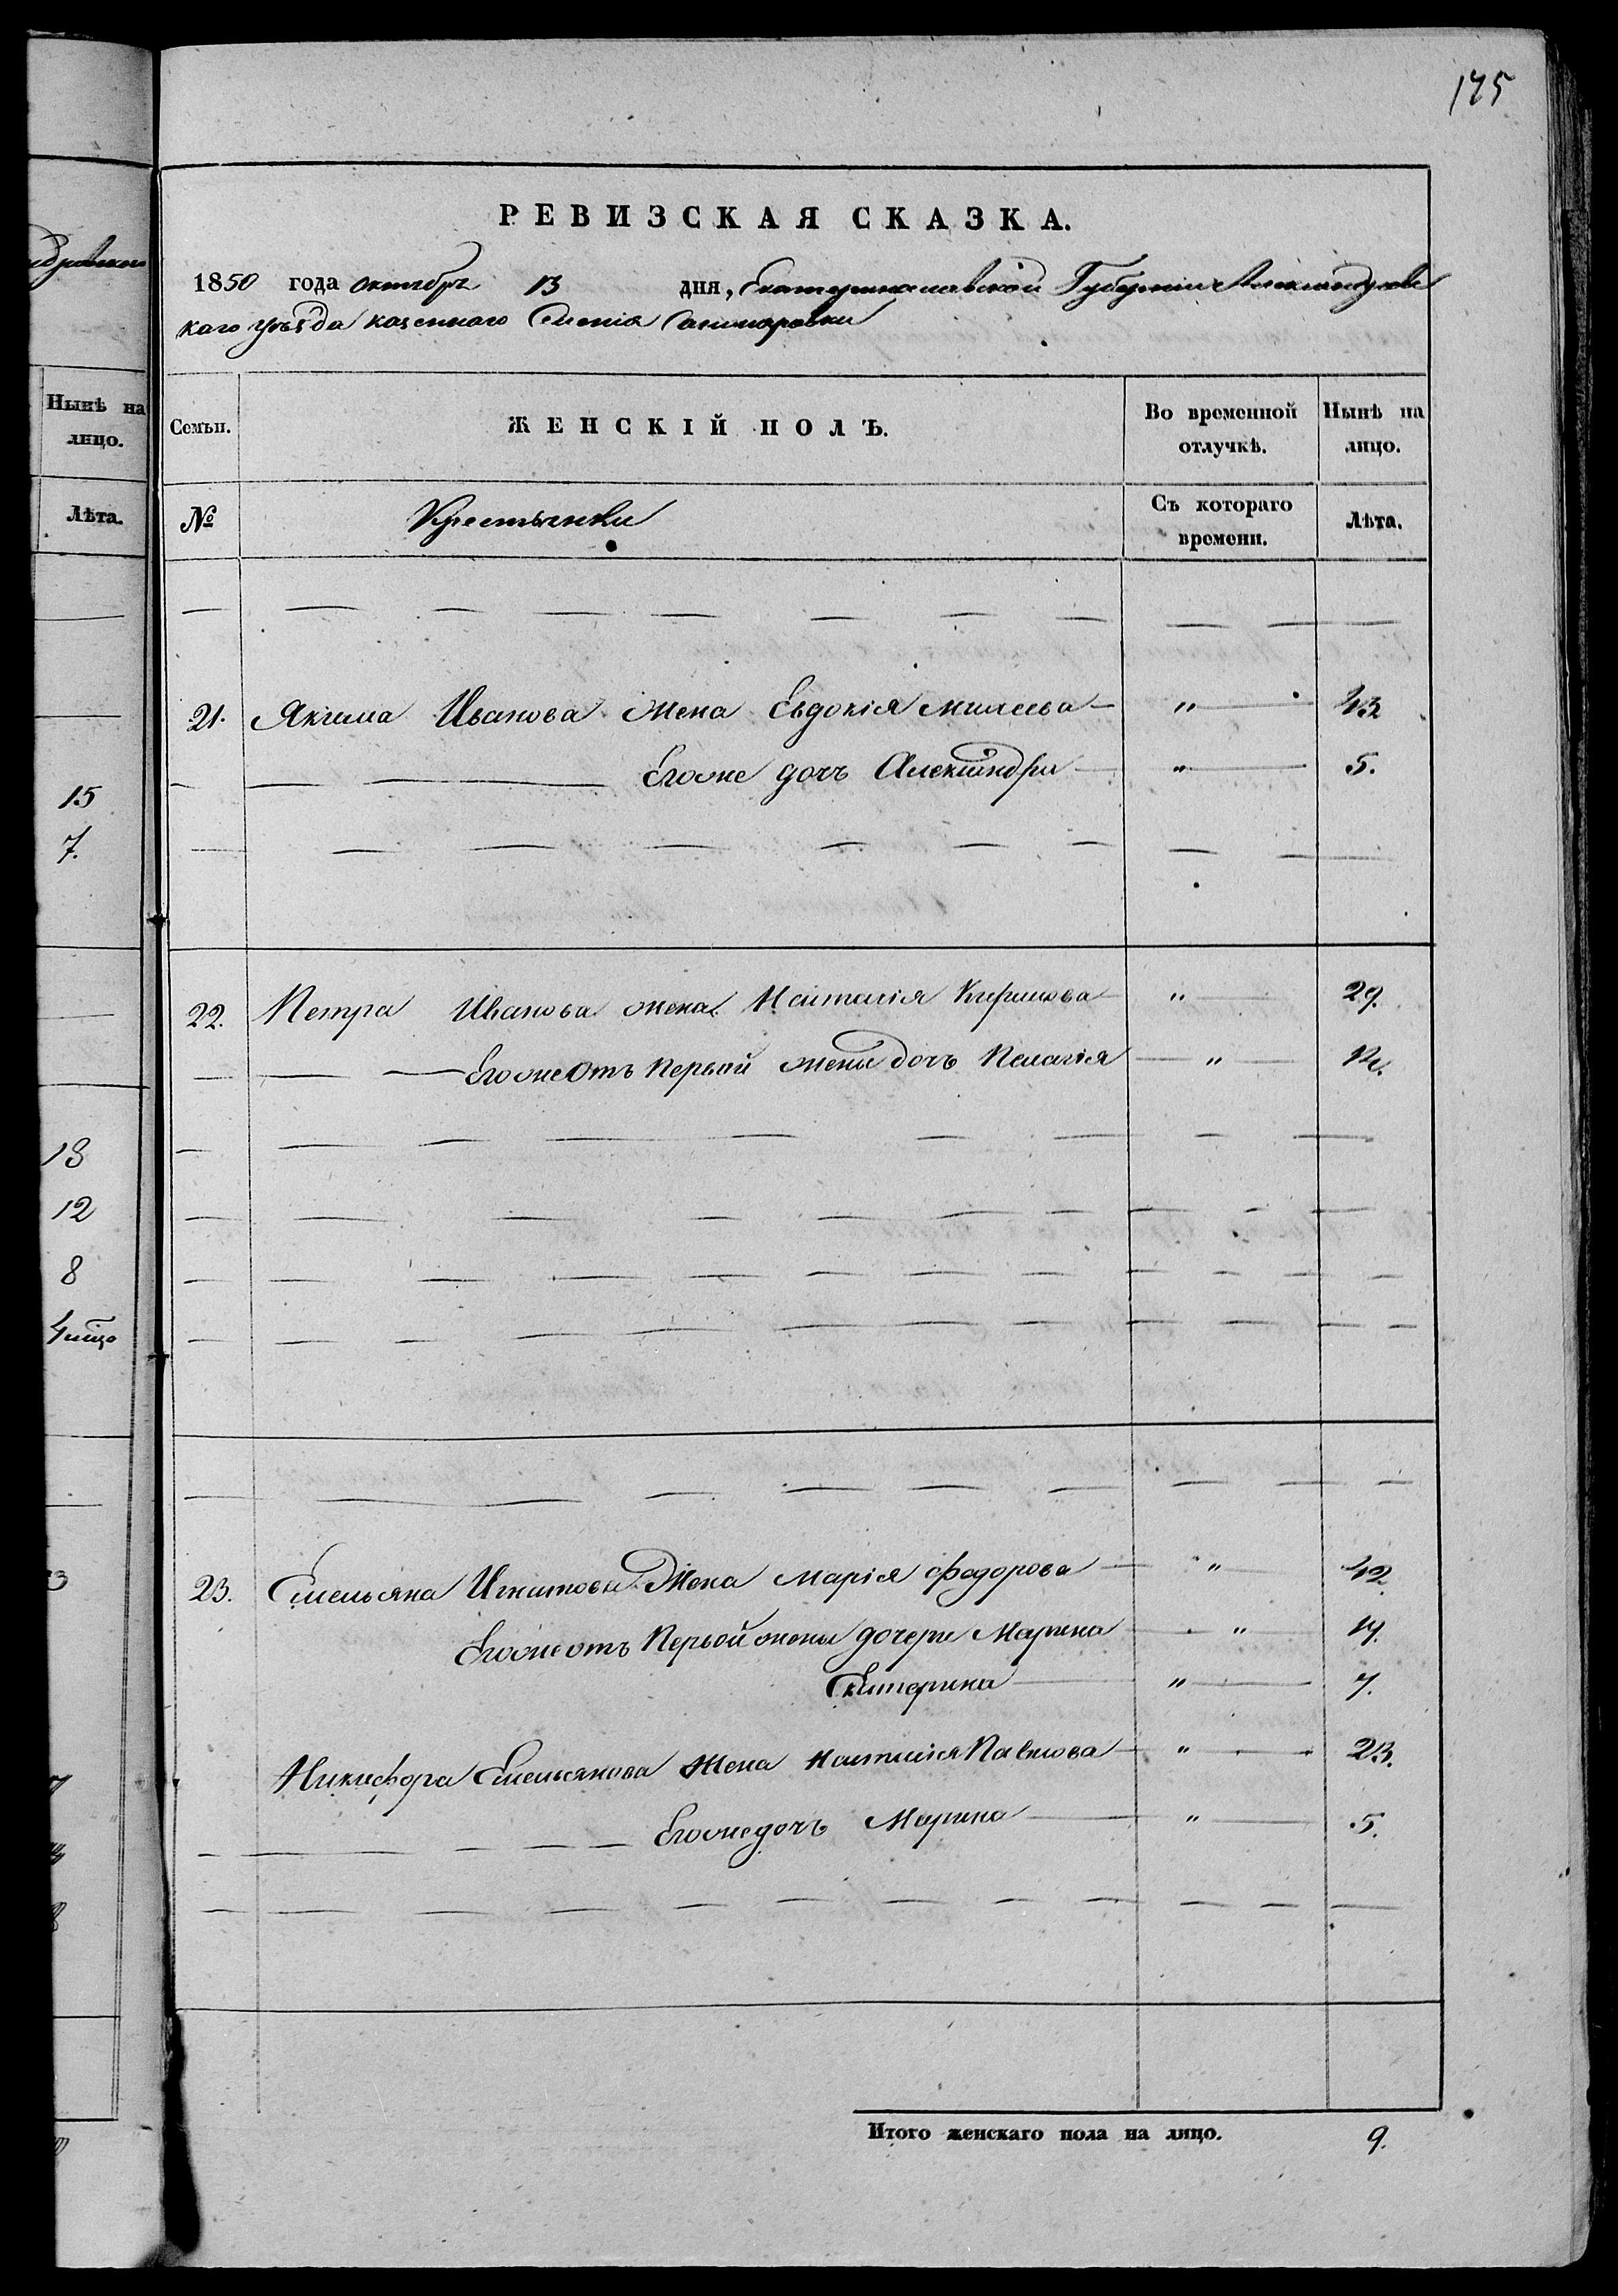 175
РЕВИЗСКАЯ СКАЗКА.
1850 года октября 13 дня, Екатеринославской Губернии Александровс
каго уѣзда казеннаго Селенія
Семьи.
ЖЕНСКІЙ ПОЛЪ.
Во временной отлучкѣ.
Нынѣ на лицо.
№
Крестьянки
Съ котораго времени.
Лѣта.
21. Якима Иванова жена Евдокія " 43
Его же дочь Александра " 5.
22. Петра Иванова жена Наталія Кирилова " 29.
Его же отъ первой жены дочь Пелагія " 12.
23. Емельяна Игнатова Жена Марія Федорова " 42
Его же отъ Первой жены дочери Марина " 14.
Екатерина " 7.
Никифора Емельянова Жена Наталія Павлова " 23.
Его же дочь Марина " 5.
Итого женскаго пола на лицо. 9.
Нынѣ на лицо.
Лѣта.
15
7.
13
12
8